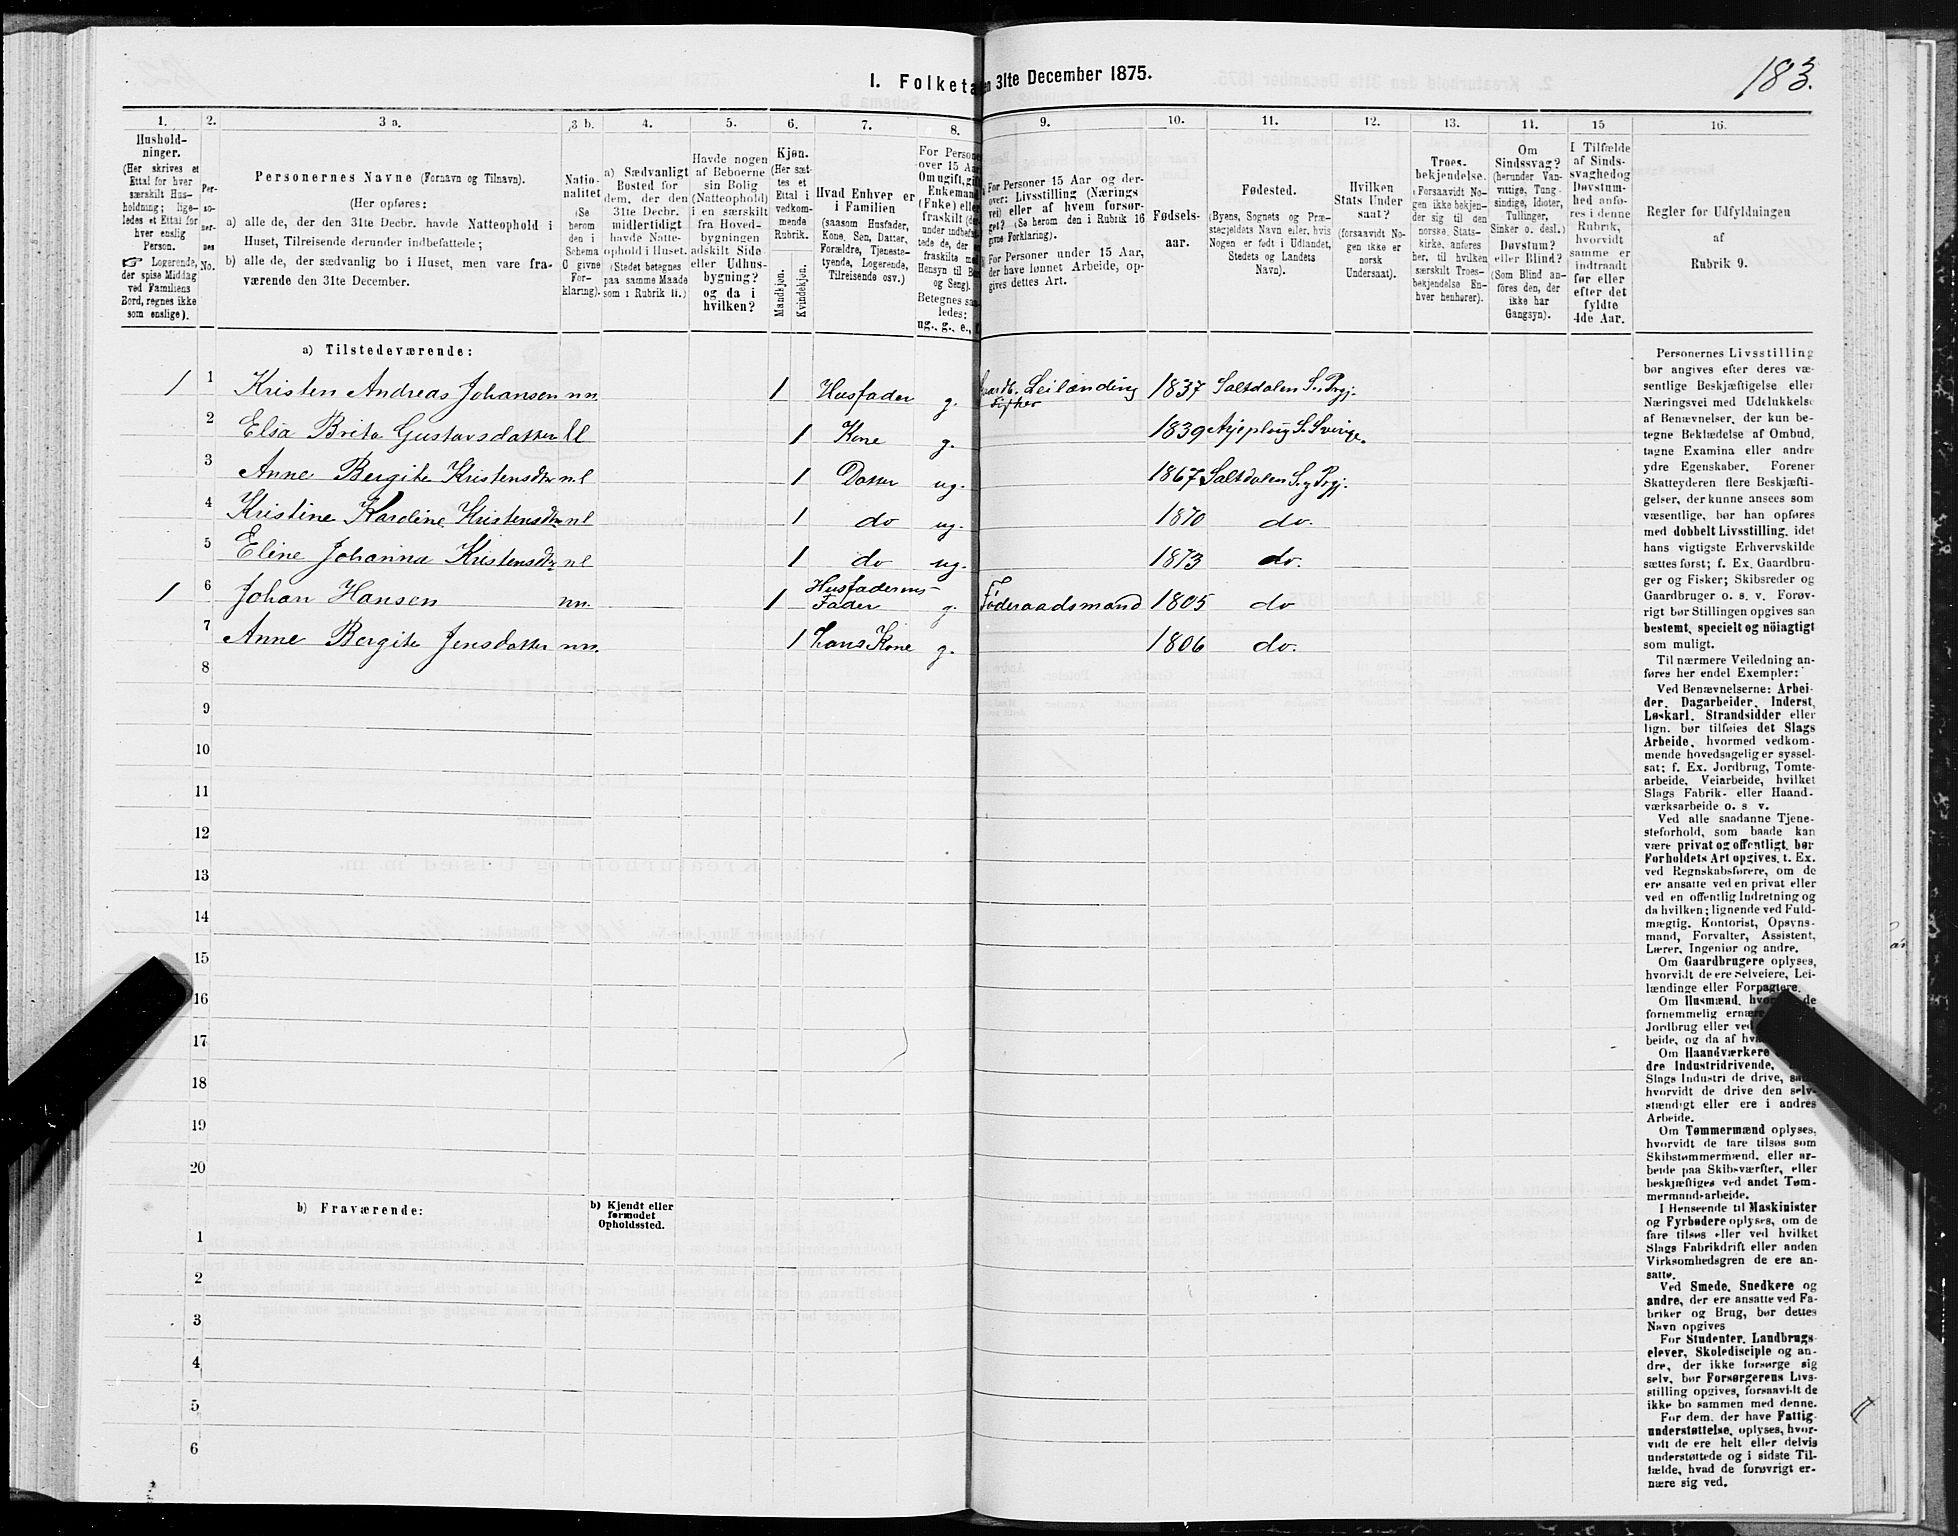 183.
I. Folketa en 31te December 1875.
1. 2. 3 a. 3 b. 4. 5. 6. 7. 8. 9. 10. 11. 12. 13. 14. 15 16.
Hushold-
ninger.
(Her skrives et
Ettal for hver
særskilt Hus-
holdning; lige-
ledes et Ettal for
hver enslig
Person.
☞ Logerende,
der spise Middag
ved Familiens
Bord, regnes ikke
som enslige).
Per-
so-
ner-
nes
No.
Personernes Navne (Fornavn og Tilnavn).
(Her opføres:
a) alle de, der den 31te Decbr. havde Natteophold i
Huset, Tilreisende derunder indbefattede;
b) alle de, der sædvanlig bo i Huset, men vare fra-
værende den 31te December.
Natio-
nalitet
(Se
herom
den i
Schema
C givne
For-
klaring).
a) Sædvanligt
Bosted for
dem, der den
31te Decbr.
midlertidigt
havde Natte-
ophold i Huset.
(Stedet betegnes
paa samme Maade
som i Rubrik 11.)
Havde nogen
af Beboerne
sin Bolig
(Natteophold)
i en særskilt
fra Hoved-
bygningen
adskilt Side-
eller Udhus-
bygning?
og da i
hvilken?
Kjøn.
(Her sæt-
tes et
Ettal i
vedkom-
mende
Rubrik.
Mandkjøn.
Kvindekjøn.
Hvad Enhver er
i Familien
(saasom Husfader,
Kone, Søn, Datter,
Forældre, Tjeneste-
tyende, Logerende,
Tilreisende osv.)
For Persone
over 15 Aar
Om ugift, gift
Enkemand
(Enke) eller
fraskilt
under indbefat-
tede de, der er
fraskilte med
Hensyn til Bo
og Seng).
Betegnes saa-
ledes:
ug., g., e., f.
For Personer 15 Aar og der-
over: Livsstilling (Nærings
vei) eller af hvem forsør-
get? (Se herom den i Rubrik 16
givne Forklaring).
For Personer under 15 Aar,
der have lønnet Arbeide, op-
gives dettes Art.
Fødsels-
aar.
Fødested.
(Byens, Sognets og Præ-
stegjeldets Navn eller, hvis
Nogen er født i Udlandet,
Stedets og Landets
Navn).
Hvilken
Stats Under
saat?
(forsaavidt No-
gen ikke er
norsk
Undersaat).
Troes-
bekjendelse.
(Forsaavidt No-
gen ikke bekjen-
der sig til den
norske Stats-
kirke, anføres
her, til hvilken
særskilt Troes-
bekjendelse En-
hver henhører).
Om
Sindssvag?
(herunder Van-
vittige, Tung-
sindige, Idioter,
Tullinger,
Sinker o. desl.)
Døvstum?
eller Blind?
(Som Blind an-
føres den, der
ikke har
Gangsyn).
I Tilfælde
af Sinds-
svaghed og
Døvstum-
hed anfø-
res i denne
Rubrik,
hvorvidt
samme er
indtraadt
før eller
efter det
fyldte
4de Aar.
Regler for Udfyldningen
af
Rubrik 9.
a) Tilstedeværende:
1 1 Kristen Andreas Johansen nn. 1 Husfader g. Leilænding 1837 Saltdalen S. Prgj.
Fisker
2 Elsa Brita Gustavsdatter ll 1 Kone g. 1839 Arjeploug S. Sverige.
3 Anne Bergite Kristensdtr nl 1 Datter ug. 1867 Saltdalen S. Prgj.
4 Kristine Karoline Kristensdtr nl 1 do ug. 1870 do.
5 Eline Johanna Kristensdtr nl 1 do ug. 1873 do.
1 6 Johan Hansen nn. 1 Husfaderens
Fader g. Føderaadsmand 1805 do
7 Anne Bergite Jensdatter nn. 1 Hans Kone g. 1806 do.
8
9
10
11
12
13
14
15
16
17
18
19
20
b) Fraværende:
b) Kjendt eller
formodet
Opholdssted.
1
2
3
4
5
6
Personernes Livsstilling
bør angives efter deres væ-
sentlige Beskjæftigelse eller
Næringsvei med Udelukkelse
af Benævnelser, der kun be-
tegne Beklædelse af Ombud,
tagne Examina eller andre
ydre Egenskaber. Forener
Skatteyderen flere Beskjæfti-
gelser, der kunne ansees som
væsentlige, bør han opføres
med dobbelt Livsstilling, idet
hans vigtigste Erhvervskilde
sættes først; f. Ex. Gaardbru-
ger og Fisker; Skibsreder og
Gaardbruger o. s. v. Forøv-
rigt bør Stillingen opgives saa
bestemt, specielt og nöiagtigt
som muligt.
Til nærmere Veiledning an-
føres her endel Exempler:
Ved Benævnelserne: Arbei-
der, Dagarbeider, Inderst,
Løskarl, Strandsidder eller
lign. bør tilføies det Slags
Arbeide, hvormed vedkom-
mende hovedsagelig er syssel-
sat; f. Ex. Jordbrug, Tomte-
arbeide, Veiarbeide, hvilket
Slags Fabrik- eller Haand-
værksarbeide o. s v.
Ved alle saadanne Tjene-
steforhold, som baade kan
være privat og offentligt, bør
Forholdets Art opgives, t. Ex.
ved Regnskabsførere, om de
ere ansatte ved en privat eller
ved en offentlig Indretning og
da hvilken; lignende ved Fuld-
mægtig, Kontorist, Opsyns-
mand, Forvalter, Assistent,
Lærer, Ingeniør og andre.
Om Gaardbrugere oplyses,
hvorvidt de ere Selveiere, Lei-
lændinge eller Forpagtere.
Om Husmænd, hvor de
fornemmelig ernære
Jordbrug eller ved
beide, og da af hva
Om Haandværkere
dre Industridrivende,
Slags Industri de drive, sam
hvorvidt de drive den selv-
stændigt eller ere i andres
Arbeide.
Om Tømmermænd oplyses,
hvorvidt de fare tilsøs som
Skibstømmermænd, eller ar-
beide paa Skibsværfter, eller
beskjæftiges ved andet Tøm-
mermandsarbeide.
I Henseende til Maskinister
og Fyrbødere oplyses, om de
fare tilsøs eller ved hvilket
Slags Fabrikdrift eller anden
Virksomhedsgren de ere an-
satte.
Ved Smede, Snedkere og
andre, der ere ansatte ved Fa-
briker og Brug, bør dettes
Navn opgives
For Studenter, Landbrugs-
elever, Skoledisciple og an-
dre, der ikke forsørge sig
selv, bør Forsørgerens Livs-
stilling opgives, forsaavidt de
ikke bo sammen med denne.
For dem, der have Fattig-
understøttelse, oplyses, hvor-
vidt de ere helt eller delvis
understøttede og i sidste Til-
fælde, hvad de forøvrigt er-
nære sig ved.